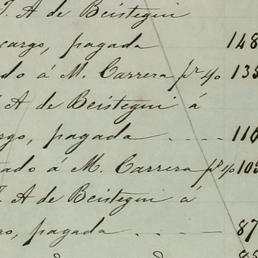 J. A de Beistegui
cargo, pagada 148
ado á M. Carrera pr 4/0 135
J A de Beistegui á
rgo, pagada ---- 110
tado á M. Carrera pr 4/0 105
J. A de Beistegui á
ro, pagada ---- 87